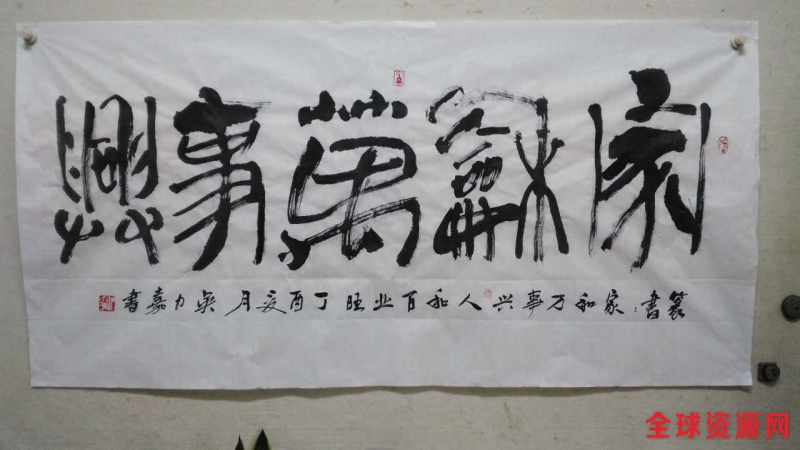 家龢萬事興
篆書：家和万事兴人和百业旺丁酉亥月吴力嘉書
全球资源网